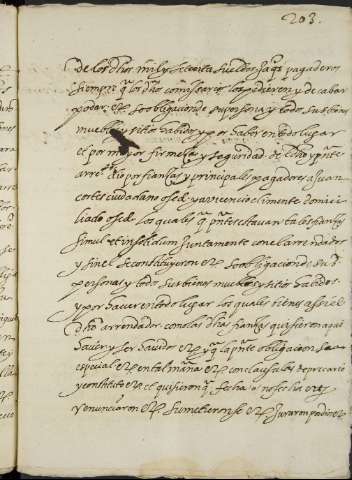 203.
De los dhos mil y sueldos Jaqs pagaderos
siempre q los dho comissarios los pidieren y de cabar
poder; etc so obligacion de su persona y todo sus bienes
muebles y sitios habidos y por haber en todo lugar
et por mayor firmeza y seguridad de dho pnte
arre dio por fianças y principales pagadores a Juan
cortes ciudadano osce y a Vincencio climente domici
liado osce los quales q pnter estavan tales fianças
simul et in solidum juntamente con el arrendador
y sin el se constituyeron etc so obligacion de sus
personas y todo sus bienes muebles y sitios havidos
y por haver en todo lugar los quales vienes assi el
dho arrendador con las dhas fianças quisieron aqui
haver y ser havidos etc y q la pnte obligacion sea
especial etc en tal manera etc con clausulas de precario
y constituto etc et quisieron q fecha o no fecha etc
y renunciaron etc sumetieronse etc juraron por dio etc